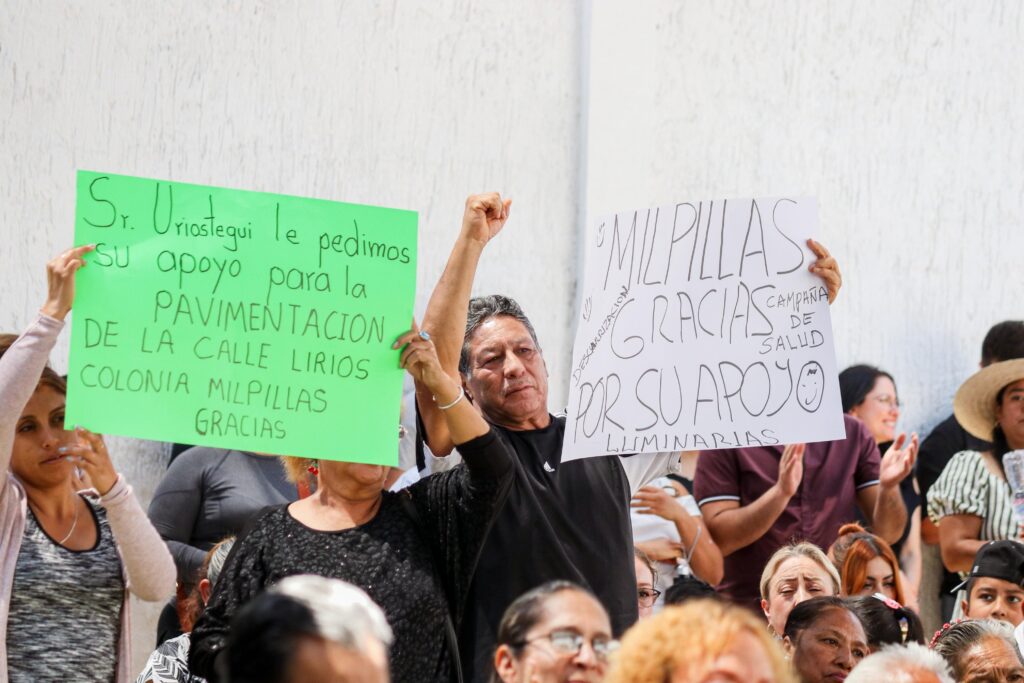 Sr. Uriostegui le pedimos
su apoyo para la
PAVIMENTACION
DE LA CALLE LIRIOS
COLONIA MILPILLAS
GRACIAS
MILPILLAS
GRACIAS
POR SU APOYO
LUMINARIAS
DESCACHARIZACION
CAMPAÑA
DE
SALUD